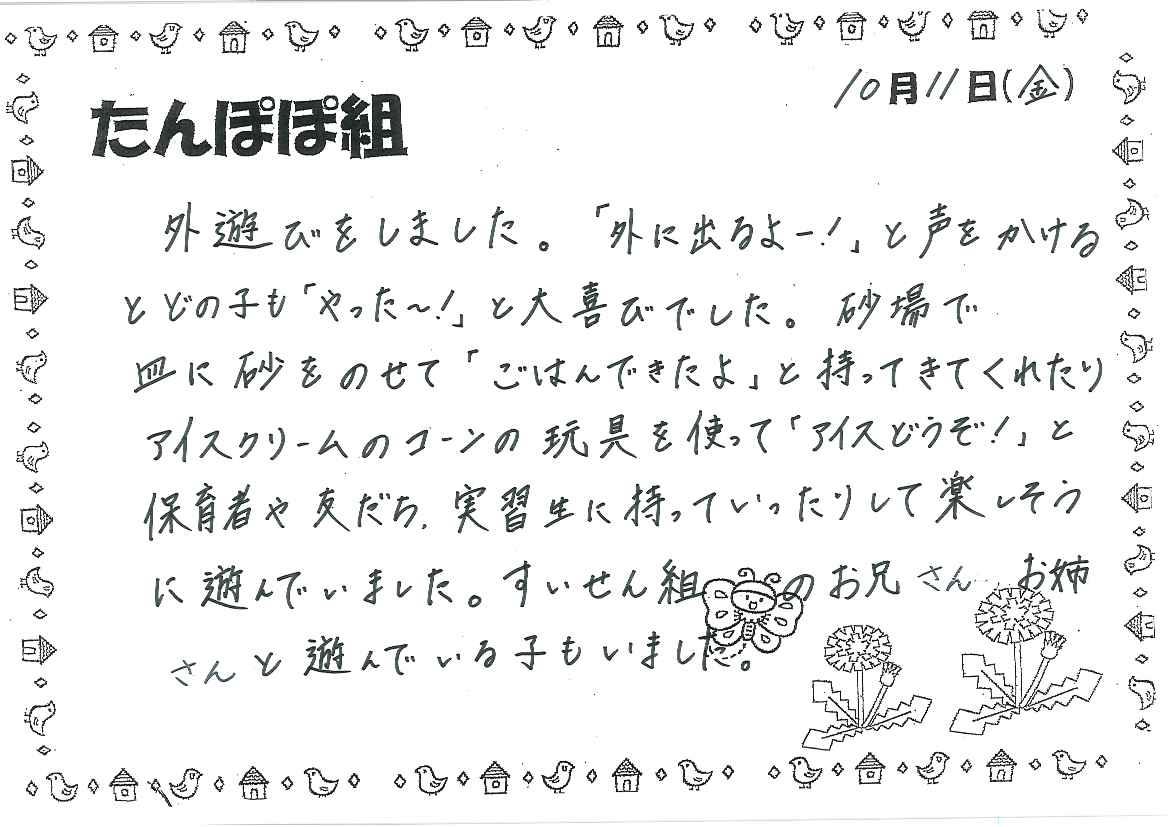 10月11日(金)
たんぽぽ組
外遊びをしました。「外に出るよー!」と声をかける
とどの子も「やった〜!」と大喜びでした。砂場で
皿に砂をのせて「ごはんできたよ」と持ってきてくれたり
アイスクリームのコーンの玩具を使って「アイスどうぞ!」と
保育者や友だち、実習生に持っていったりして楽しそう
に遊んでいました。すいせん組のお兄さん、お姉
さんと遊んでいる子もいました。